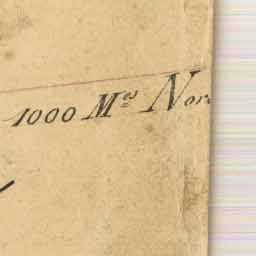 1000 M.es Nor